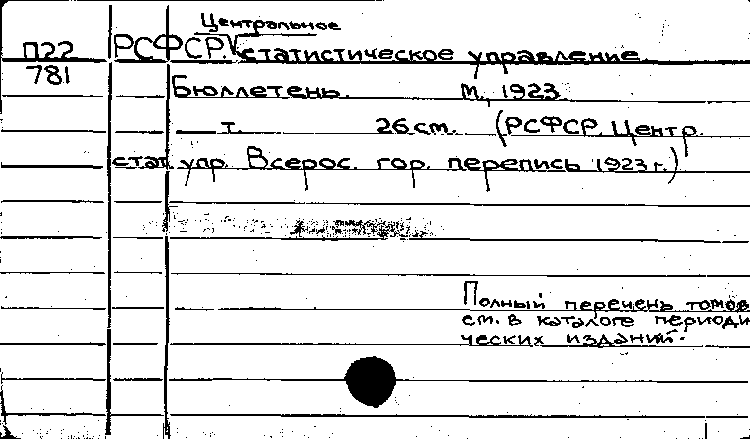 Центральное
П22 РСФСР. статистическое управление.
781
Бюллетень. М., 1923
— т. 26 см. (РСФСР. Центр.
стат. упр. Всерос. гор. перепись 1923 г.)
Полный перечень томов
см. в каталоге периоди
ческих изданий.